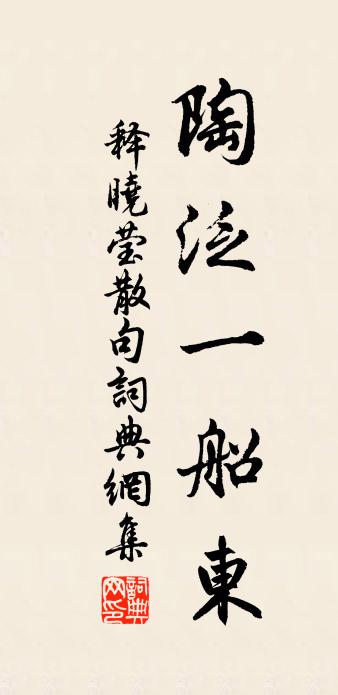 陶泛一船東
释曉莹散句詞典網集
詞典网印